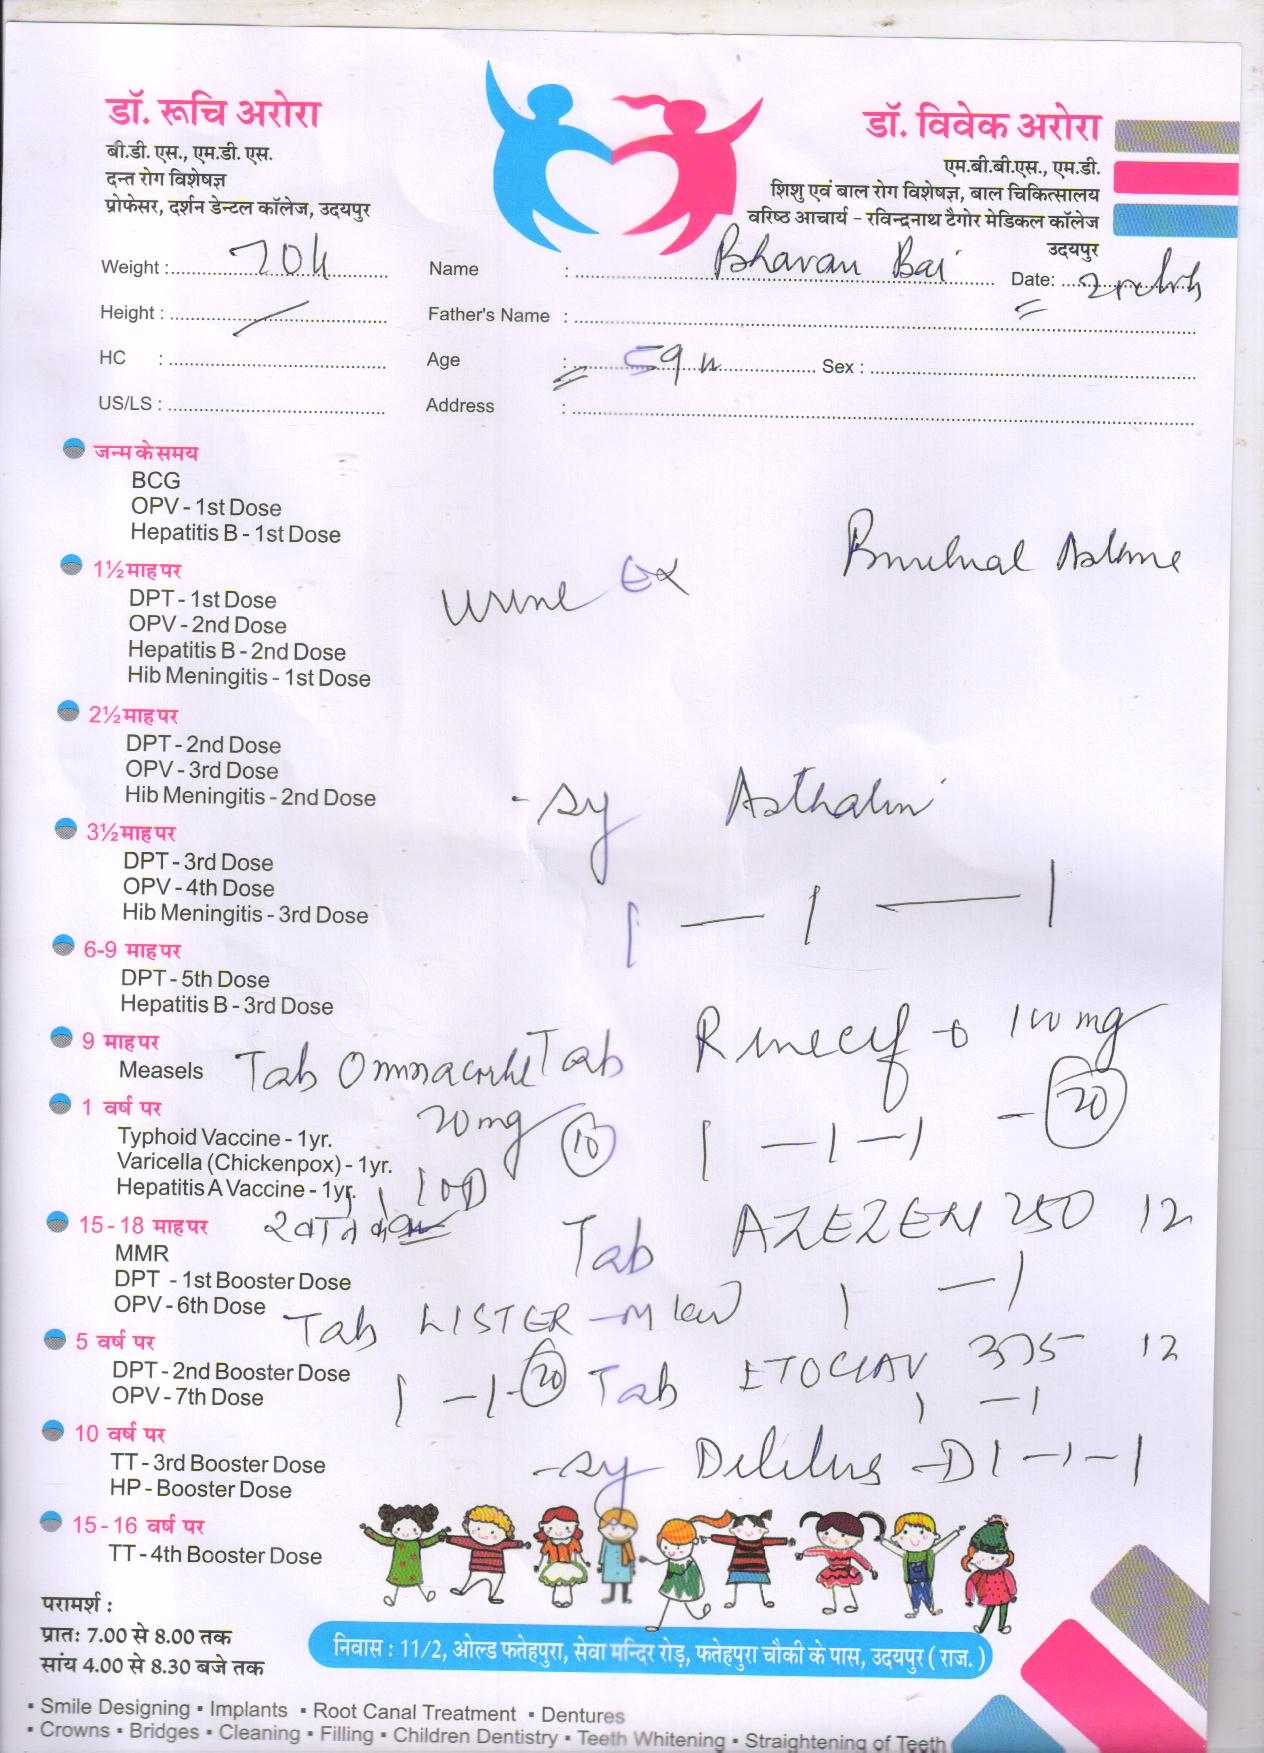 डॉ. रूचि अरोरा
बी.डी. एस., एम.डी. एस.
दन्त रोग विशेषज्ञ
प्रोफेसर, दर्शन डेन्टल कॉलेज, उदयपुर
डॉ. विवेक अरोरा
एम.बी.बी.एस., एम.डी.
शिशु एवं बाल रोग विशेषज्ञ, बाल चिकित्सालय
वरिष्ठ आचार्य - रविन्द्रनाथ टैगोर मेडिकल कॉलेज
उदयपुर
Weight : Name : Bhavan Bai Date:
Height : Father's Name :
HC : Age : 59 Sex :
US/LS : Address :
जन्म के समय
BCG
OPV - 1st Dose
Hepatitis B - 1st Dose
Asthma
1½ माह पर
Urine
DPT - 1st Dose
OPV - 2nd Dose
Hepatitis B - 2nd Dose
Hib Meningitis - 1st Dose
2½ माह पर
DPT - 2nd Dose
OPV - 3rd Dose
Hib Meningitis - 2nd Dose
Sy Asthalin
3½ माह पर
DPT - 3rd Dose
OPV - 4th Dose
Hib Meningitis - 3rd Dose
1 — 1 — 1
6-9 माह पर
DPT - 5th Dose
Hepatitis B - 3rd Dose
9 माह पर
Measels
Tab Omnacortil Tab 100 mg
1 वर्ष पर
20mg 10 1 - 1 - 1 - 20
Typhoid Vaccine - 1yr.
Varicella (Chickenpox) - 1yr.
Hepatitis A Vaccine - 1yr.
1 OD
15 - 18 माह पर
Tab 250 12
MMR
DPT - 1st Booster Dose
OPV - 6th Dose
1 - 1
Tab LISTER-M
5 वर्ष पर
DPT - 2nd Booster Dose
OPV - 7th Dose
1 - 1 - 20 Tab ETOCLAV 375 12
1 - 1
10 वर्ष पर
TT - 3rd Booster Dose
HP - Booster Dose
Sy -D 1 - 1 - 1
15 - 16 वर्ष पर
TT - 4th Booster Dose
परामर्श :
प्रातः 7.00 से 8.00 तक
सांय 4.00 से 8.30 बजे तक
निवास : 11/2, ओल्ड फतेहपुरा, सेवा मन्दिर रोड़, फतेहपुरा चौकी के पास, उदयपुर ( राज. )
▪ Smile Designing ▪ Implants ▪ Root Canal Treatment ▪ Dentures
▪ Crowns ▪ Bridges ▪ Cleaning ▪ Filling ▪ Children Dentistry ▪ Teeth Whitening ▪ Straightening of Teeth